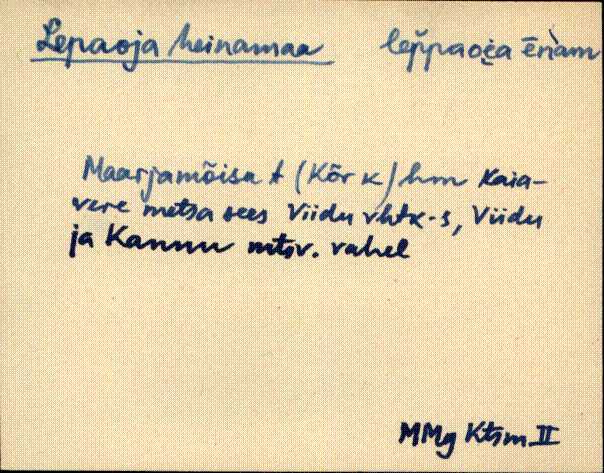 Lepaoja heinamaa lep̆paoi̯a ēǹam
Maarjamõisa t (Kõr k) hm Kaia-
vere metsa sees Viidu vhtk-s, Viidu
ja Kannu mtsv. vahel
MMg Ktsm II